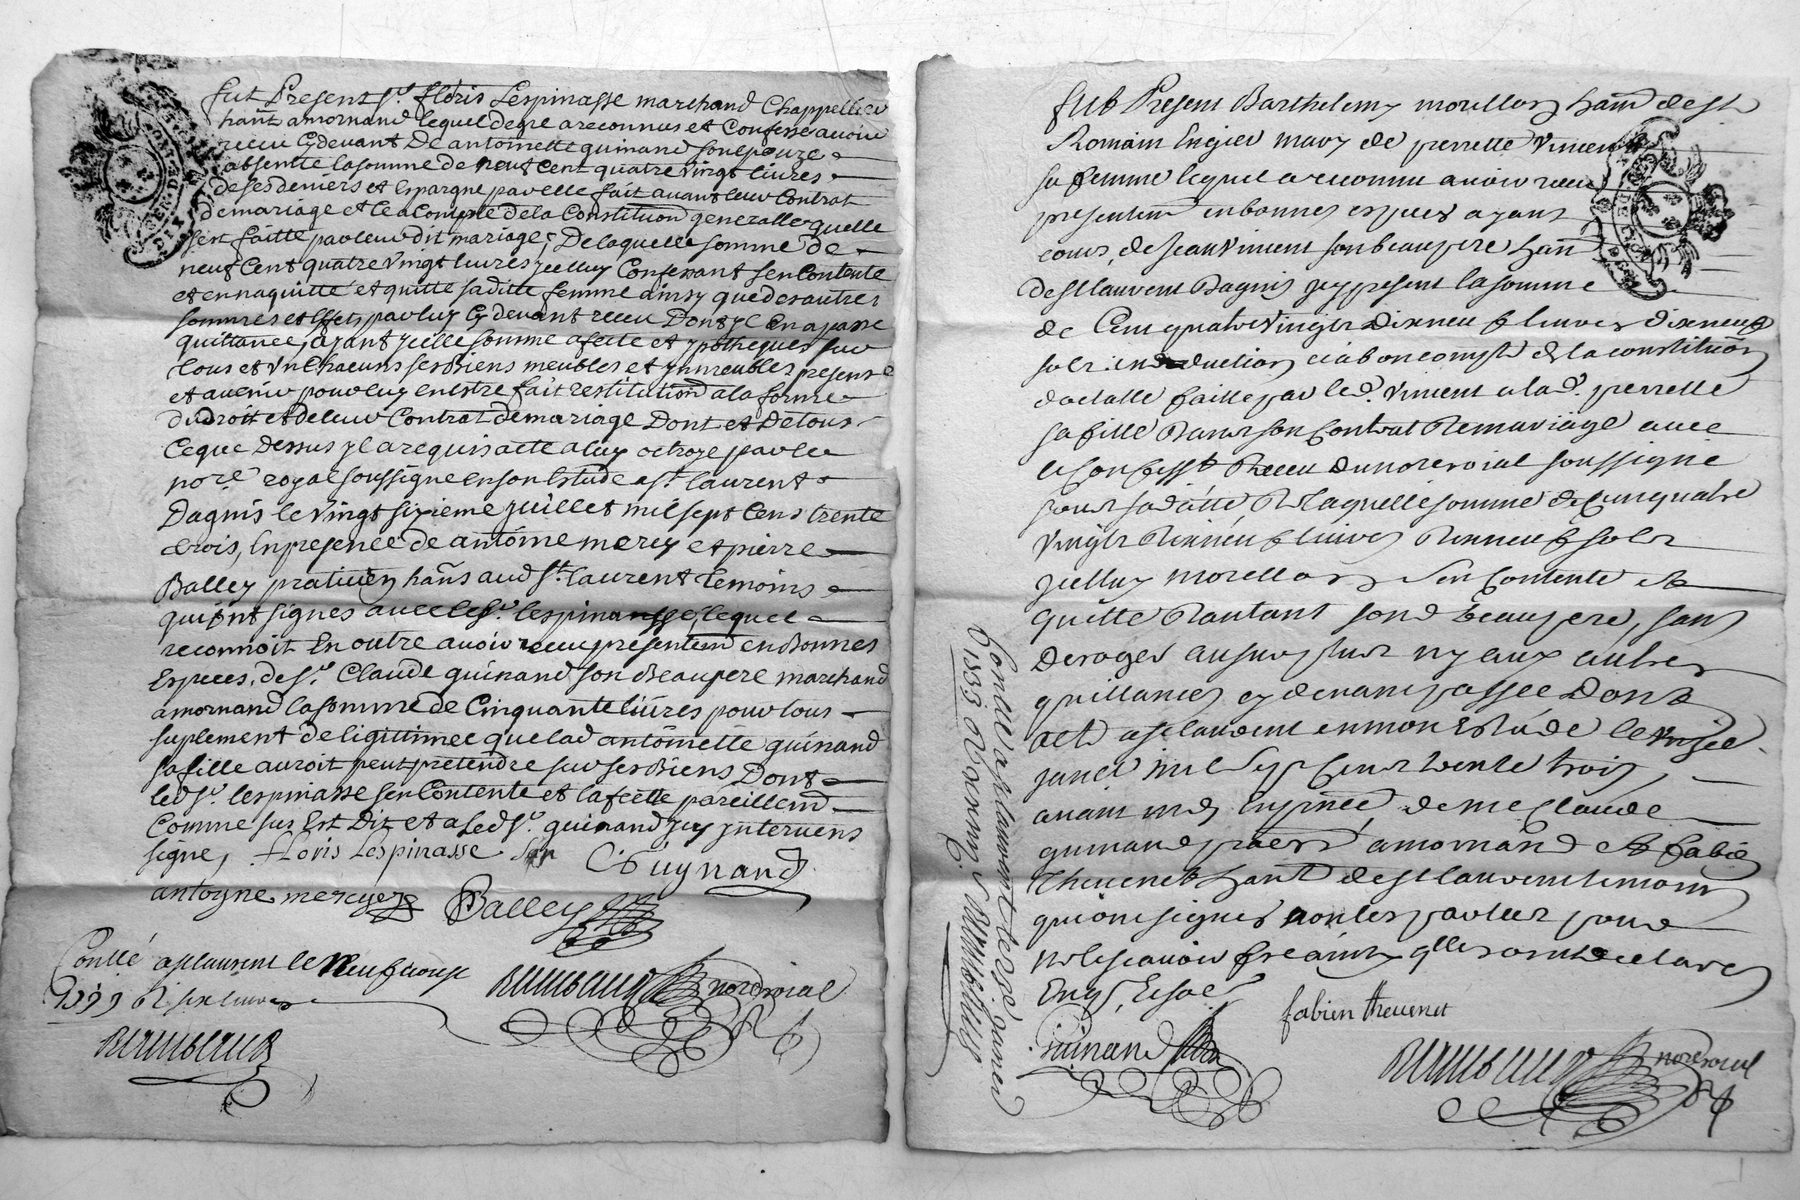 fut Present Sr. floris Lespinasse marchand Chappellier
hant. a mornand lequel de gre a reconnus et Confesse avoir
receu Cy devant De antoinette guinand son epouze
absentte la somme de neuf Cent quatre vingt livres
de ses deniers et Espargne par elle fait avant leur Contrat
de mariage et le a Compte de la Constitution generalle quelle
sest faitte par leur dit mariage, De laquelle somme de
neuf Cent quatre vingt livres ycelluy Confessant sen Contente
et en naquitte et quitte sa ditte femme ainsy que des autres
sommes et effets par luy Cy devant receu Dont yl en a passe
quittance, ayant ycelle somme afecte et ypotheques sur
tous et Un Chacuns ses Biens meubles et ymmeubles presens
et avenir pour luy en Estre fait restitution a la forme
du Droit et de leur Contrat de mariage Dont et De tous
Ce que Dessus yl a requis acte a luy octroye par le
nore. royal soussigne en son Estude a St. laurent
Dagnis le vingt sixieme juillet mil sept Cens trente
trois, En presence de antoine mercy et pierre
Balley praticien hans. aud St. laurent temoins
qui ont signes avec le Sr. lespinasse, lequel
reconnoit En outre avoir receu presentemt en Bonnes
Especes, de Sr. Claude guinand son Beaupere marchand
a mornand la somme de Cinquante livres pour tous
suplement de ligittimee que lad antoinette guinand
sa fille auroit peut pretendre sur ses Biens Dont
led Sr. lespinasse sen Contente et la fecte pareillemt
Comme sus Est Dit et a led Sr. guinand yey yntervens
signe, floris Lespinasse C. Guynand
antoyne mercyer Balley
Conllé a st laurent le neuf
1733 Rt six livres
nore roial
fut Present Barthelemy morellon hant de St
Romain En gier mary de perrette vincent
sa femme lequel a reconnu avoir receu
presentemt en bonnes especes ayant
cours, de Jean vincent son beaupere hant
de St laurent Dagnis yey present la somme
de Cent quatre vingts Dix neuf livres dix neuf
sols en deduction et a bon compte de la constitution
dotalle faitte par led. vincent a lad. perrette
sa fille Dans son Contrat De mariage avec
le Confesst. Receu du nore roial soussigne
sous sa datte De laquelle somme de Cent quatre
vingts Dix neuf livres Dix neuf sols
ycelluy morellon sen Contente et
quitte Dautant sond beaupere, sans
Deroger ny aux autres
quittances cy devant passee Dont
acte a st laurent en mon Estude le
mil sept Cens trente trois
avant midy En pnce de me Claude
guinand a mornand et fabien
Thevenet hant de St laurent temoins
qui ont signes non les parties pour
ne le scavoir faire ainsy qlles ont declare
Enqs. et soe.
fabien thevenet
Guinand
nore roial
Controllé a st laurent
1733